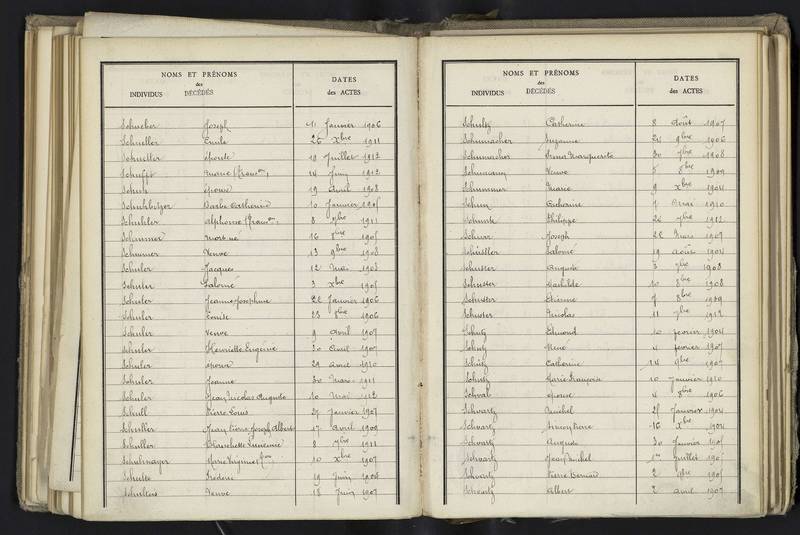 NOMS ET PRÉNOMS
des
INDIVIDUS DÉCÉDÉS
DATES
des ACTES
Schucher Joseph 11 Janvier 1906
Schueller Emile 26 Xbre 1911
Schueller épouse 19 Juillet 1912
14 Juin 1912
épouse 19 Avril 1908
Barbe Catherine 10 Janvier
Alphonse 8 1911
mort né 16
Veuve 13 9bre 1908
Schuler Jacques 12 Mai 1903
Schuler Salomé 3 Xbre
Schuler Jeanne Josephine 22 Janvier 1906
Schuler Emile 23 1906
Schuler Veuve 9 Avril 1907
Schuler Henriette Eugénie 30 Avril 1907
Schuler épouse 29 Avril 1910
Schuler Jeanne 30 Mars 1911
Schuler Jean Nicolas Auguste 10 Mai 1912
Schull Pierre Louis 27 Janvier 1907
Schuller Jean Pierre Joseph Albert 17 Avril 1909
Schuller Blanchette Lucienne 8 1911
Schulmayer 10 Xbre 1907
Schulte Frédéric 19 Juin 1908
Veuve 18 Juin 1907
NOMS ET PRÉNOMS
des
INDIVIDUS DÉCÉDÉS
DATES
des ACTES
Schultz Catherine 8 Août 1907
Schumacher Suzanne 24 9bre 1906
Schumacher Marguerite 30 1908
Schumann Veuve 5 8bre 1909
Marie 9 Xbre 1904
Catherine 7 Mai 1910
Philippe 26 1912
Joseph 22 Mars 1907
Salomé 19 Août 1904
Schuster Auguste 3 1908
Schuster Mathilde 10 8bre 1908
Schuster Etienne 7 8bre 1909
Schuster Nicolas 11 1912
Schutz Edmond 10 février 1904
Schutz René 4 février 1907
Schutz Catherine 14 1907
Schutz Marie Françoise 10 Janvier 1910
Schwal épouse 4 8bre 1906
Schwartz Michel 21 Janvier 1904
Schwartz 16 Xbre 1904
Schwartz Auguste 30 Janvier
Schwartz Jean Michel 1er Juillet
Schwartz Pierre Bernard 2
Schwartz Albert 2 Avril 1907